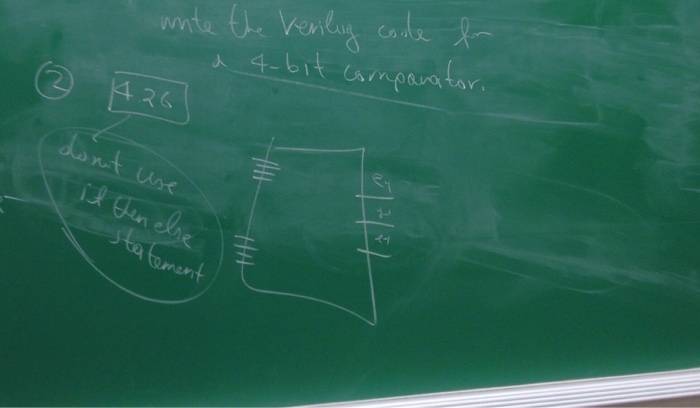 write the Verilog code for
a 4-bit comparator.
② 4.26
don't use
if then else
statement
eq